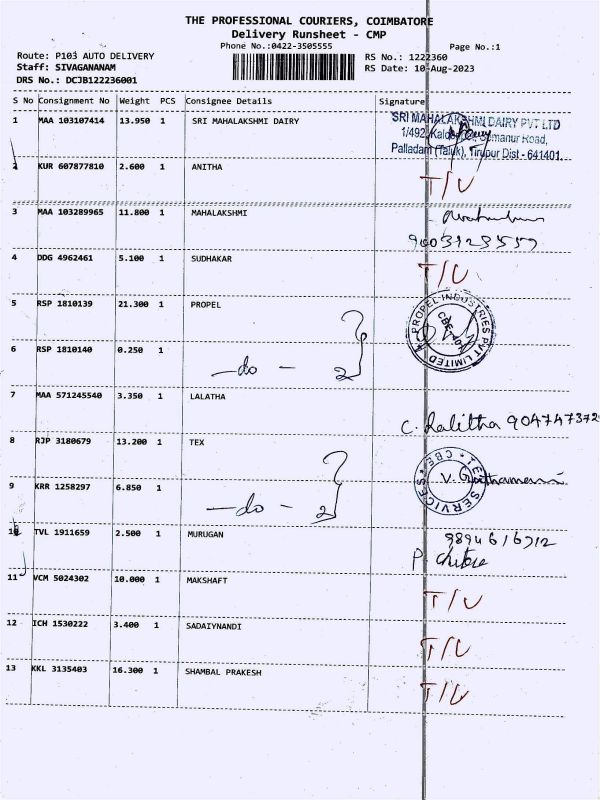 THE PROFESSIONAL COURIERS, COIMBATORE
Delivery Runsheet - CMP
Phone No.:0422-3505555 Page No.:1
Route: P103 AUTO DELIVERY RS No.: 1222360
Staff: SIVAGANANAM RS Date: 10-Aug-2023
DRS No.: DCJB122236001
S No Consignment No Weight PCS Consignee Details Signature
1 MAA 103107414 13.950 1 SRI MAHALAKSHMI DAIRY
SRI MAHALAKSHMI DAIRY PVT LTD
1/492, Road,
Palladam (Taluk), Tirupur Dist - 641401.
2 KUR 607877810 2.600 1 ANITHA T/U
3 MAA 103289965 11.800 1 MAHALAKSHMI
9003123557
4 DDG 4962461 5.100 1 SUDHAKAR T/U
5 RSP 1810139 21.300 1 PROPEL
PROPEL INDUSTRIES PVT LIMITED
6 RSP 1810140 0.250 1 -do- 2
7 MAA 571245540 3.350 1 LALATHA
C. Lalitha 904747372
8 RJP 3180679 13.200 1 TEX
9 KRR 1258297 6.850 1 -do- 2
10 TVL 1911659 2.500 1 MURUGAN
9894616912
11 VCM 5024302 10.000 1 MAKSHAFT T/U
12 ICH 1530222 3.400 1 SADAIYNANDI T/U
13 KKL 3135403 16.300 1 SHAMBAL PRAKESH T/U